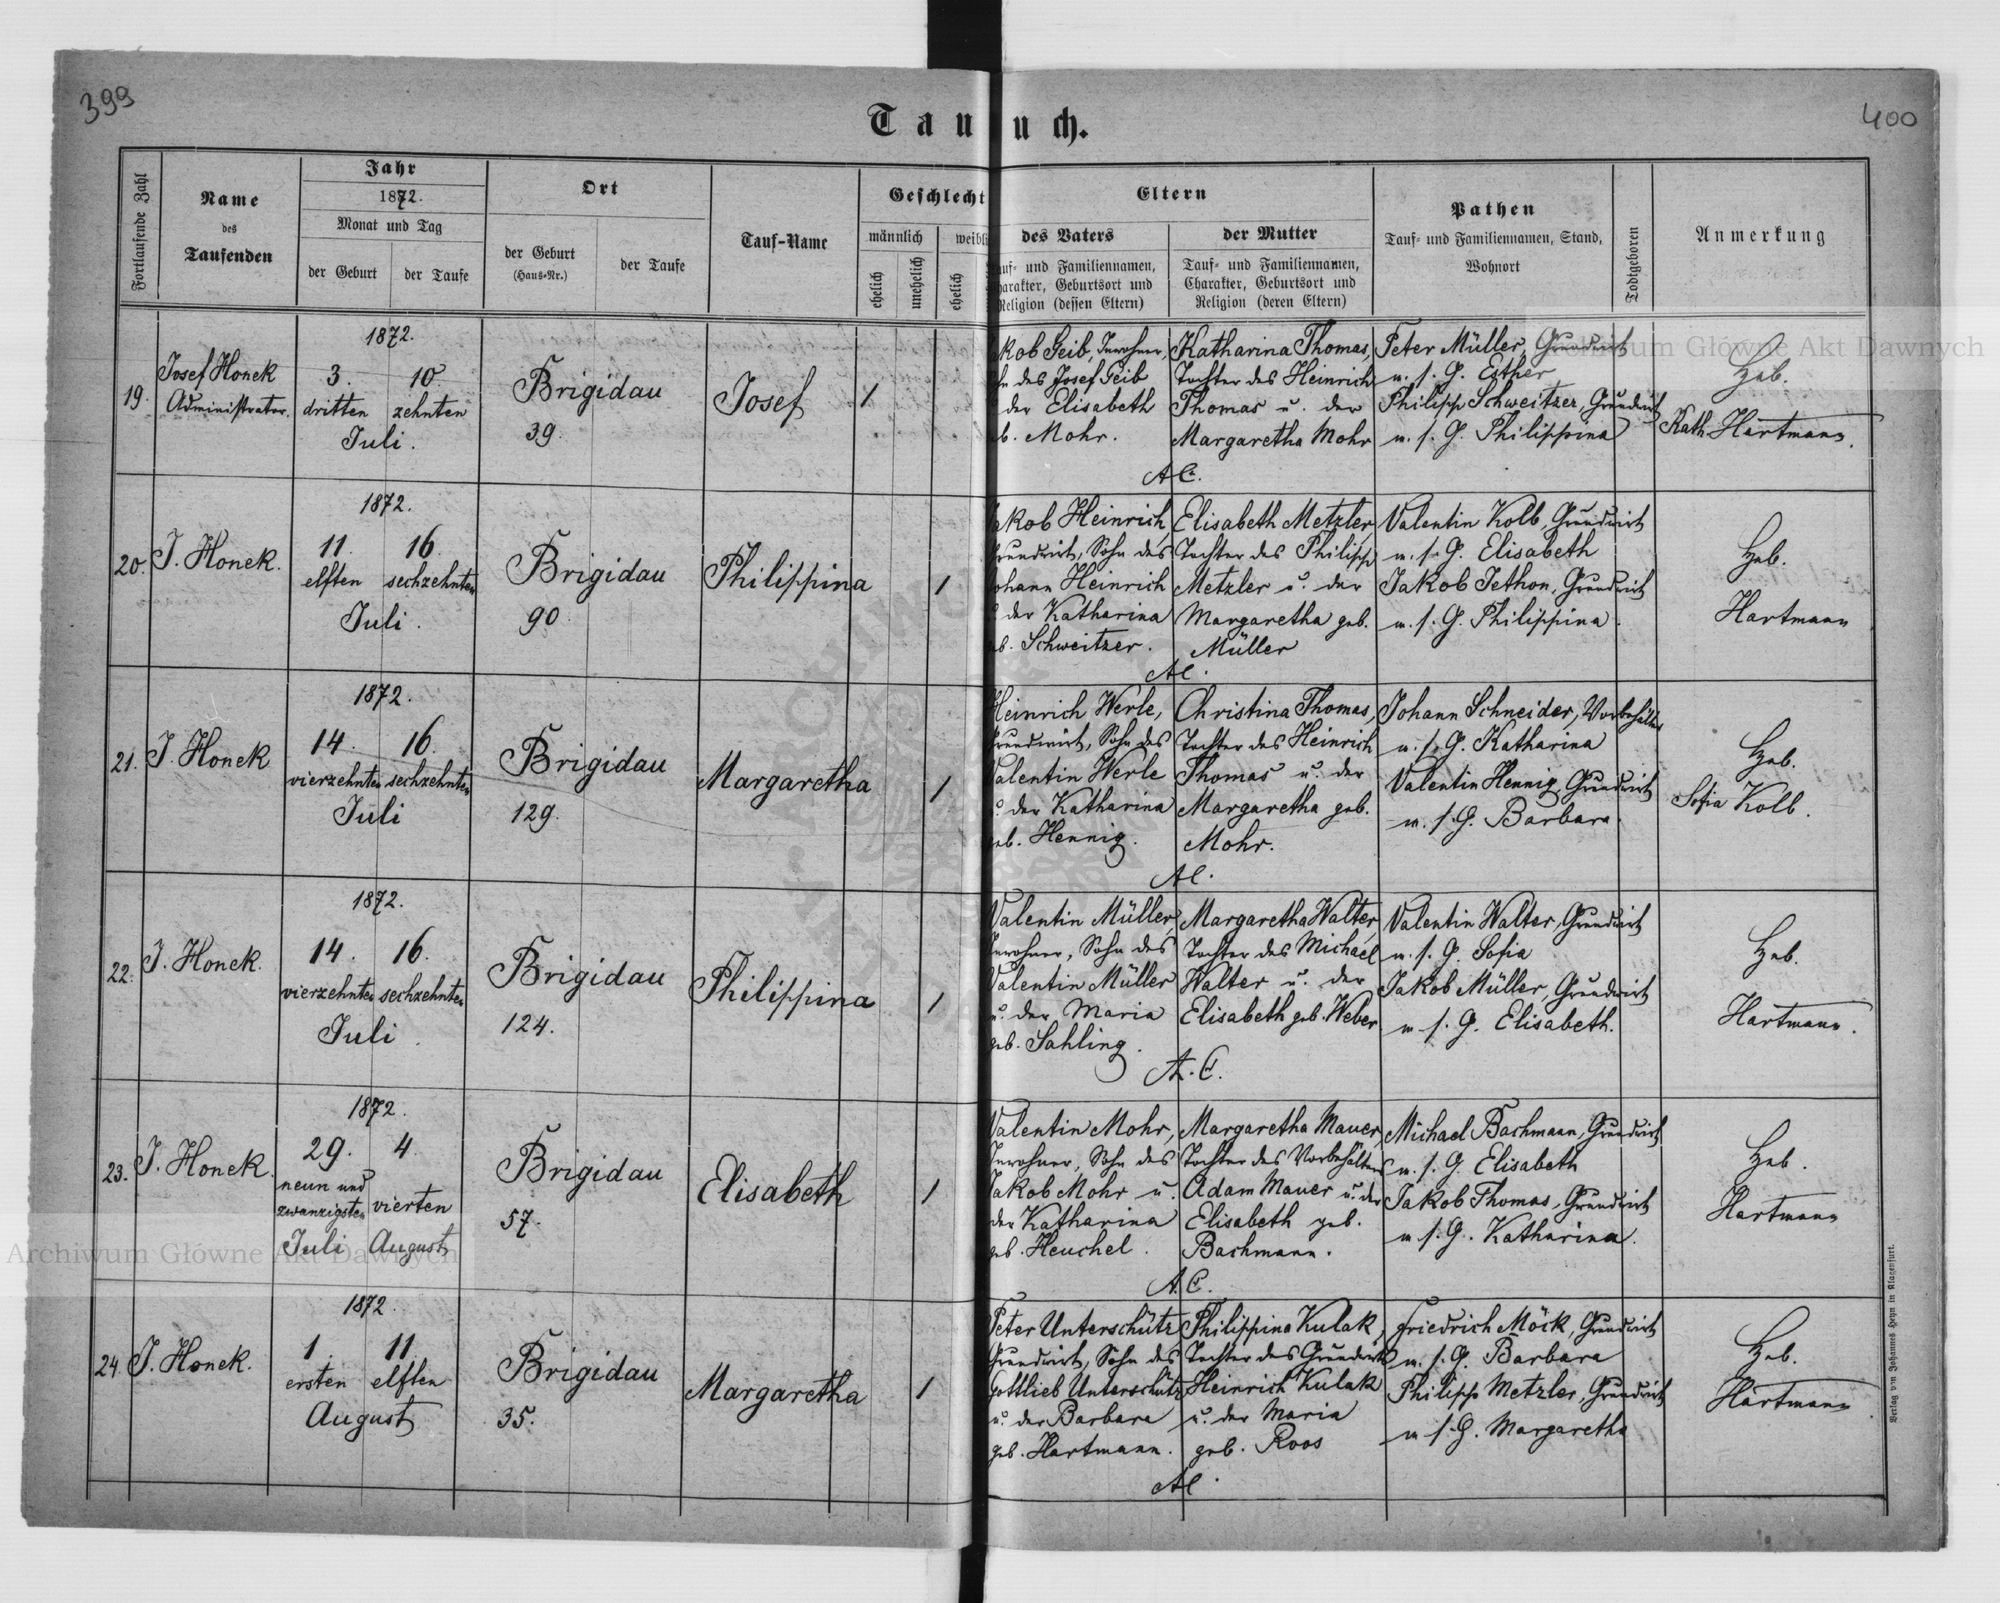 399
400
Tau uch.
Fortlaufende Zahl
Name
des
Taufenden
Jahr
1872.
Monat und Tag
der Geburt
der Taufe
Ort
der Geburt
(Haus-Nr.)
der Taufe
Tauf-Name
Geschlecht
männlich
weibli
ehelich
unehelich
ehelich
Eltern
des Vaters
auf- und Familiennamen,
harakter, Geburtsort und
Religion (dessen Eltern)
der Mutter
Tauf- und Familiennamen,
Charakter, Geburtsort und
Religion (deren Eltern)
Pathen
Tauf- und Familiennamen, Stand,
Wohnort
Todtgeboren
Anmerkung
19.
Josef Honek
Administrator.
1872.
3. 10.
dritten zehnten
Juli.
Brigidau
39.
Josef
1
akob Geib, Inwohner,
hn des Josef Geib
der Elisabeth
b. Mohr.
Katharina Thomas,
Tochter des Heinrich
Thomas u. der
Margaretha Mohr
A C.
Peter Müller, Grundwirt
u. s. G. Esther
Philipp Schweitzer, Grundwirt
u. s. G. Philippina
Heb.
Kath Hartmann.
20.
J. Honek.
1872.
11. 16.
elften sechzehnten
Juli.
Brigidau
90
Philippina
1
Jakob Heinrich,
Grundwirt, Sohn des
Johann Heinrich
u. der Katharina
geb. Schweitzer.
Elisabeth Metzler,
Tochter des Philipp
Metzler u. der
Margaretha geb.
Müller
AC.
Valentin Kolb, Grundwirt
u. s. G. Elisabeth
Jakob Jethon, Grundwirt
u. s. G. Philippina.
Heb.
Hartmann
21.
J. Honek
1872.
14. 16.
vierzehnten sechzehnten
Juli
Brigidau
129.
Margaretha
1
Heinrich Werle,
Grundwirt, Sohn des
Valentin Werle
u. der Katharina
geb. Hennig.
Christina Thomas,
Tochter des Heinrich
Thomas u. der
Margaretha geb.
Mohr.
AC.
Johann Schneider, Vorbehälter
u. s. G. Katharina
Valentin Hennig, Grundwirt
u. s. G. Barbara.
Heb.
Sofia Kolb.
22.
J. Honek.
1872.
14. 16.
vierzehnten sechzehnten
Juli.
Brigidau
124.
Philippina
1
Valentin Müller,
Inwohner, Sohn des
Valentin Müller
u. der Maria
geb. Sahling.
Margaretha Walter,
Tochter des Michael
Walter u. der
Elisabeth geb. Weber
A. C.
Valentin Walter, Grundwirt
u. s. G. Sofia
Jakob Müller, Grundwirt
u. s. G. Elisabeth.
Heb.
Hartmann.
23.
J. Honek.
1872.
29. 4.
neun und
zwanzigsten vierten
Juli August
Brigidau
57.
Elisabeth
1
Valentin Mohr,
Inwohner, Sohn des
Jakob Mohr u.
der Katharina
geb. Heuchel.
Margaretha Mauer,
Tochter des Vorbehälters
Adam Mauer u. der
Elisabeth geb.
Bachmann.
A. C.
Michael Bachmann, Grundwirt
u. s. G. Elisabeth
Jakob Thomas, Grundwirt
u. s. G. Katharina.
Heb.
Hartmann
24.
J. Honek.
1872.
1. 11.
ersten elften
August
Brigidau
35.
Margaretha
1
Peter Unterschütz
Grundwirt, Sohn des
Gottlieb Unterschütz
u. der Barbara
geb. Hartmann.
Philippina Kulak,
Tochter des Grundwirts
Heinrich Kulak
u. der Maria
geb. Roos
AC.
Friedrich Möck, Grundwirt
u. s. G. Barbara
Philipp Metzler, Grundwirt
u. s. G. Margaretha
Heb.
Hartmann
Verlag von Johannes Heyn in Klagenfurt.
Archiwum Główne Akt Dawnych
Archiwum Główne Akt Dawnych